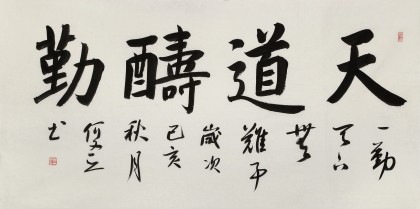 天道醻勤
一勤
天下
無
難事
歲次
己亥
秋月
书